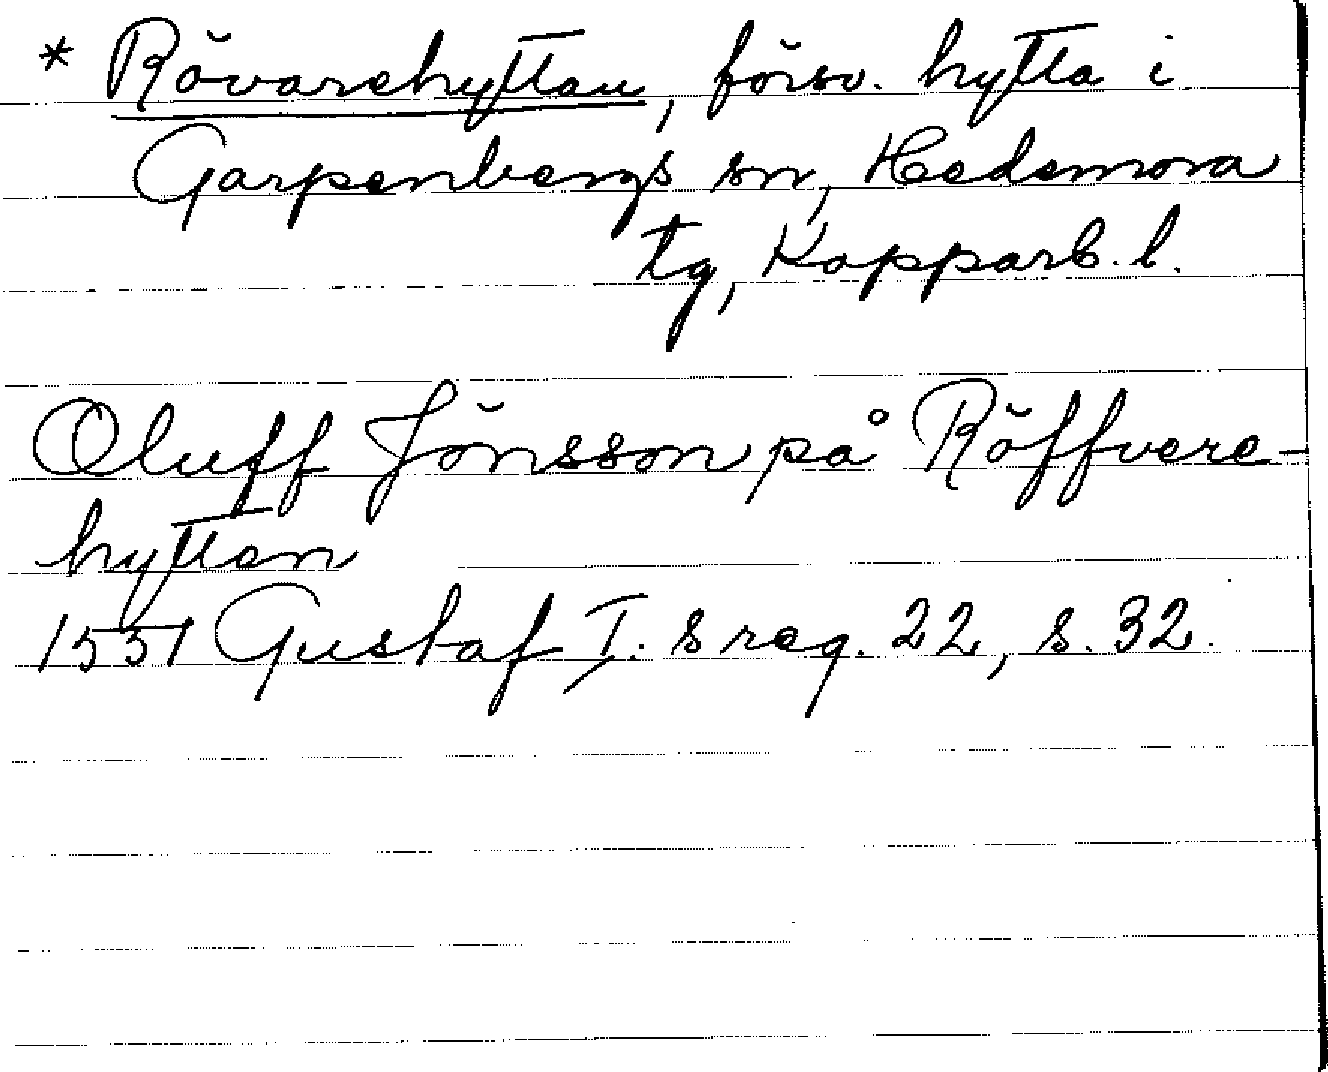 * Rövarehyttan, försv. hytta i
Garpenbergs sn, Hedemora
tg, Kopparb. l.
Oluff Jönsson på Röffvere-
hyttan
1551 Gustaf I:s reg. 22, s. 32.